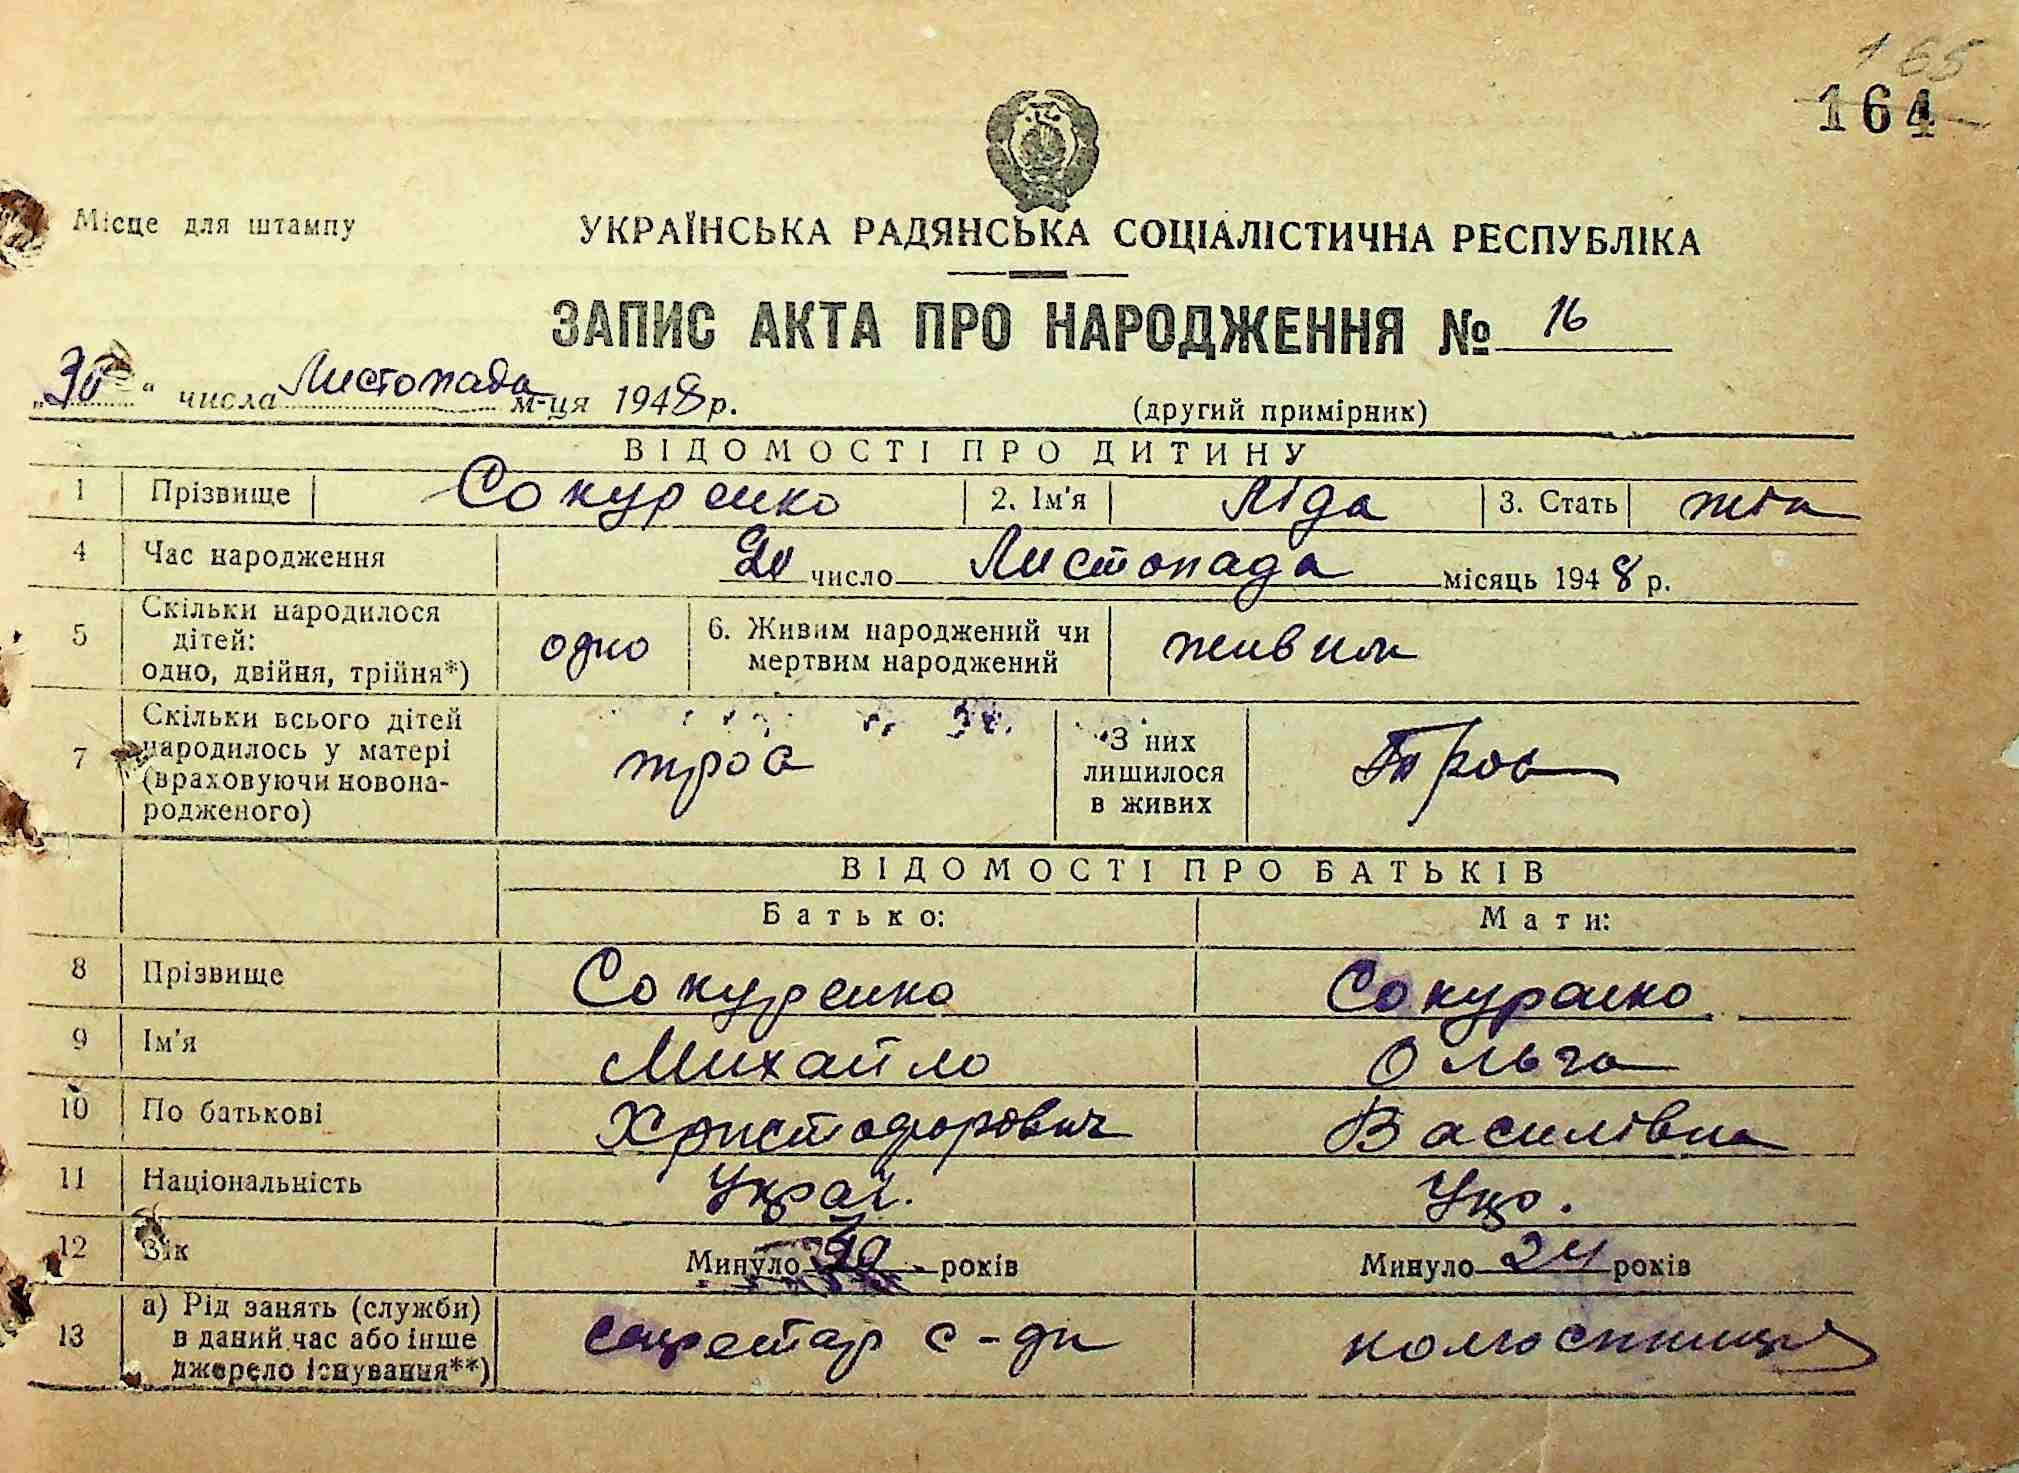 165
164
Місце для штампу
УКРАЇНСЬКА РАДЯНСЬКА СОЦІАЛІСТИЧНА РЕСПУБЛІКА
ЗАПИС АКТА ПРО НАРОДЖЕННЯ № 16
„30“ числа Листопада м-ця 1948 р.
(другий примірник)
ВІДОМОСТІ ПРО ДИТИНУ
1 Прізвище Сокуренко 2. Ім'я Ліда 3. Стать жін
4 Час народження 20 число Листопада місяць 1948 р.
5 Скільки народилося дітей: одно, двійня, трійня*) одно 6. Живим народжений чи мертвим народжений живим
7 Скільки всього дітей народилось у матері (враховуючи новонародженого) троє З них лишилося в живих Троє
ВІДОМОСТІ ПРО БАТЬКІВ
Батько: Мати:
8 Прізвище Сокуренко Сокуренко
9 Ім'я Михайло Ольга
10 По батькові Христофорович Василівна
11 Національність Украї. Укр.
12 Вік Минуло років Минуло 24 років
13 а) Рід занять (служби) в даний час або інше джерело існування**) секретар с-ди колгоспниця